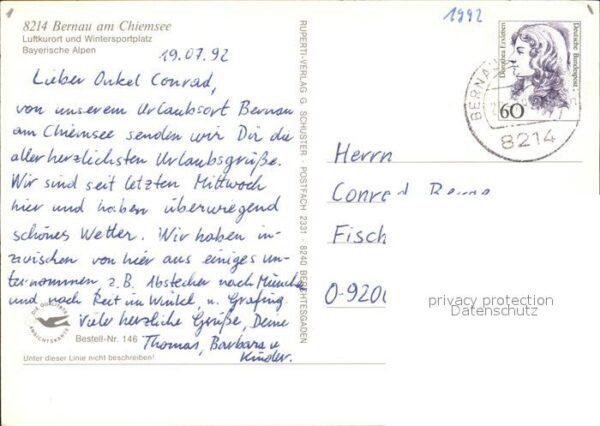 8214 Bernau am Chiemsee
Luftkurort und Wintersportplatz
Bayerische Alpen
19.07.92
Lieber Onkel Conrad,
von unserem Urlaubsort Bernau
am Chiemsee senden wir Dir die
allerherzlichsten Urlaubsgrüße.
Wir sind seit letzten Mittwoch
hier und haben überwiegend
schönes Wetter. Wir haben in-
zwischen von hier aus einiges un-
ternommen, z.B. Abstecher nach München
und nach Reit im Winkel, u. Grafing.
Viele herzliche Grüße, Deine
Thomas, Barbara u
Kinder.
DIE QUALITÄTS
ANSICHTSKARTE
Bestell-Nr. 146
Unter dieser Linie nicht beschreiben!
RUPERTI-VERLAG G. SCHUSTER · POSTFACH 2331 · 8240 BERCHTESGADEN
1992
Dorothea Erxleben
Deutsche Bundespost
60
BERNAU
8214
Herrn
Conrad
Fisch
O-920
privacy protection
Datenschutz